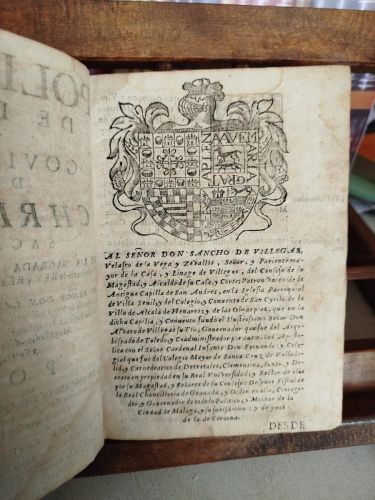 POLI
DE D
GOVI
D
CHR
SAC
A LA SAGRADA
AVE MA
GRATI
PLENA
AL SEÑOR DON SANCHO DE VILLEGAS,
Velasco de la Vega y Zevallos, Señor, y Pariente ma-
yor de la Casa, y Linage de Villegas, del Consejo de su
Magestad, y Alcalde de su Casa, y Corte; Patron vnico de la
Antigua Capilla de San Andres, en la Iglesia Parroquial
de Villa Seuil, y del Colegio, y Conuento de San Cyrilo de la
Villa de Alcalá de Henares: y de las Obras pias, que en la
dicha Capilla, y Conuento fundò el Ilustrissimo Señor Don
Aluaro de Villegas su Tio, Gouernador que fue del Arço-
bispado de Toledo; y Coadministrador por autoridad Aposto-
lica con el Señor Cardenal Infante Don Fernando: y Cole-
gial que fue del Colegio Mayor de Santa Cruz de Vallado-
lid, y Cathedratico de Decretales, Clementina, Sexto, y De-
creto en propiedad en su Real Vniuersidad, y Retor de ella
por su Magestad, y Señores de su Consejo: Despues Fiscal de
la Real Chancilleria de Granada, y Oidor en ella, Corregi-
dor, y Gouernador en todo lo Politico, y Militar de la
Ciudad de Malaga, y su jurisdicion: y despues
de la de Cordoua.
DESDE